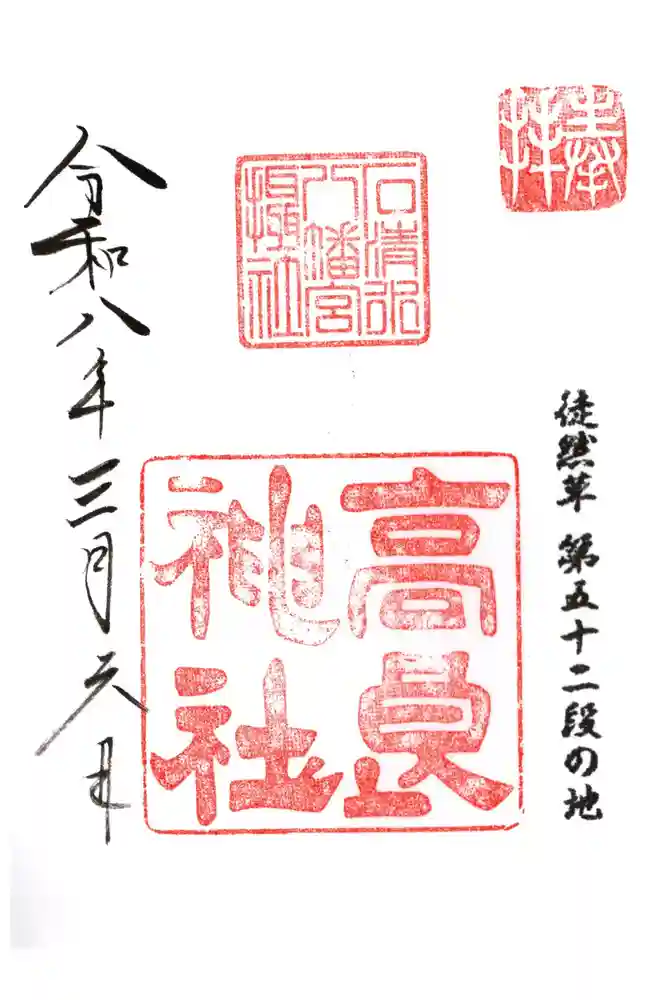 奉拝
徒然草 第五十二段の地
石清水
八幡宮
攝社
高良
神社
令和八年三月六日